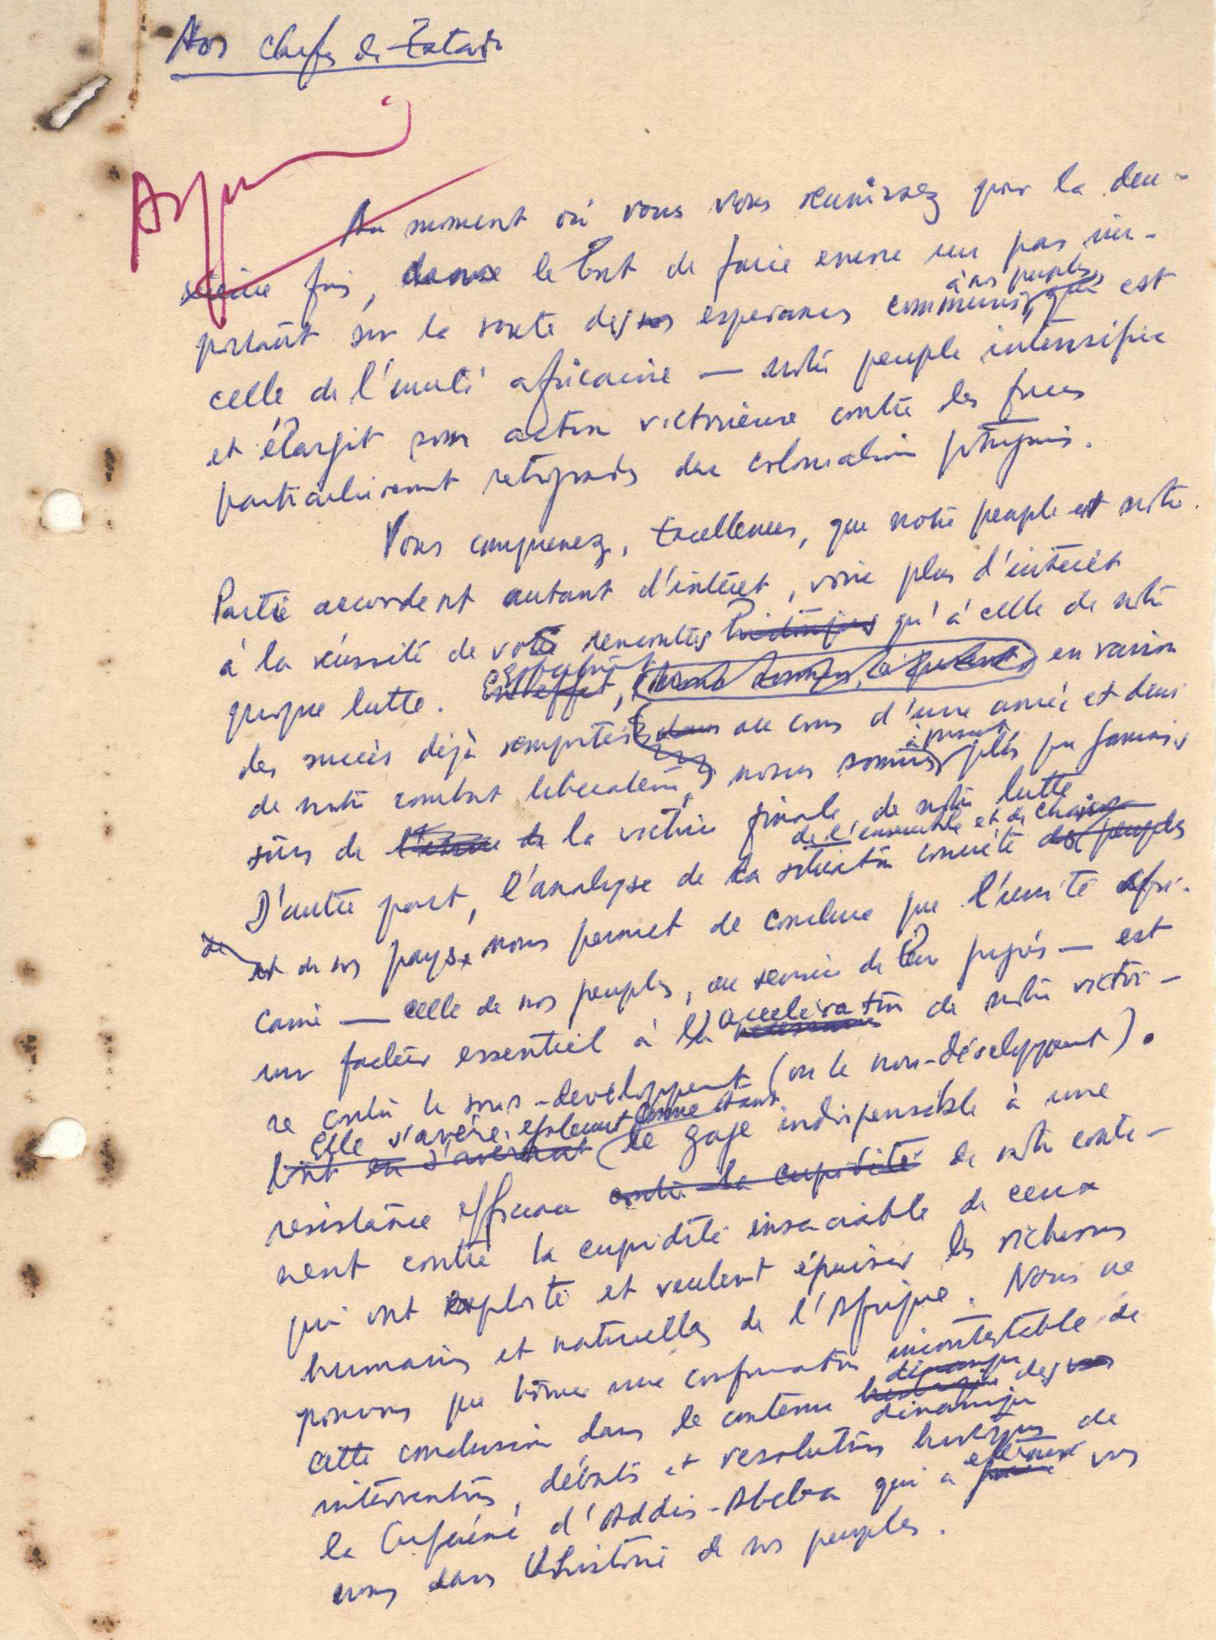 Aos Chefes de Estado
Au moment où vous vous réunissez pour la deu-
xième fois, dans le but de faire encore un pas im-
à nos peuples
portant sur la route des nos esperances communes, qui est
celle de l'unité africaine — notre peuple intensifie
et élargit son action victorieuse contre les forces
particulièrement retrogrades du colonialisme portugais.
Vous comprenez, Excellences, que notre peuple et notre
Parti accordent autant d'intéret, voire plus d'intéret
à la réussite de votre rencontre qu'à celle de notre
propre lutte. En effet, en raison
des succès déjà remportés dans au cours d'une année et demi
à présent
de notre combat liberateur, nous sommes plus que jamais
sûrs de la victoire finale de notre lutte
de l'ensemble et de chaque
D'autre part, l'analyse de la situation concrète des peuples
de
et de nos pays, nous permet de conclure que l'unité afri-
caine — celle de nos peuples, au service de leur progrès — est
un facteur essentiel à l'acceleration de notre victoi-
re contre le sous-developpement (ou le non-développement).
Elle s'avère, egalement comme étant
le gage indispensable à une
resistance efficace contre la cupidité de notre conti-
nent contre la cupidité insaciable de ceux
qui ont exploité et veulent épuiser les richesses
humaines et naturelles de l'Afrique. Nous ne
pouvons que trouver une confirmation incontestable de
dinamique
cette conclusion dans le contenu historique des vos
dinamique
interventions, débats et resolutions historiques de
la Conférence d'Addis-Abeba qui a vos
noms dans l'histoire de nos peuples.